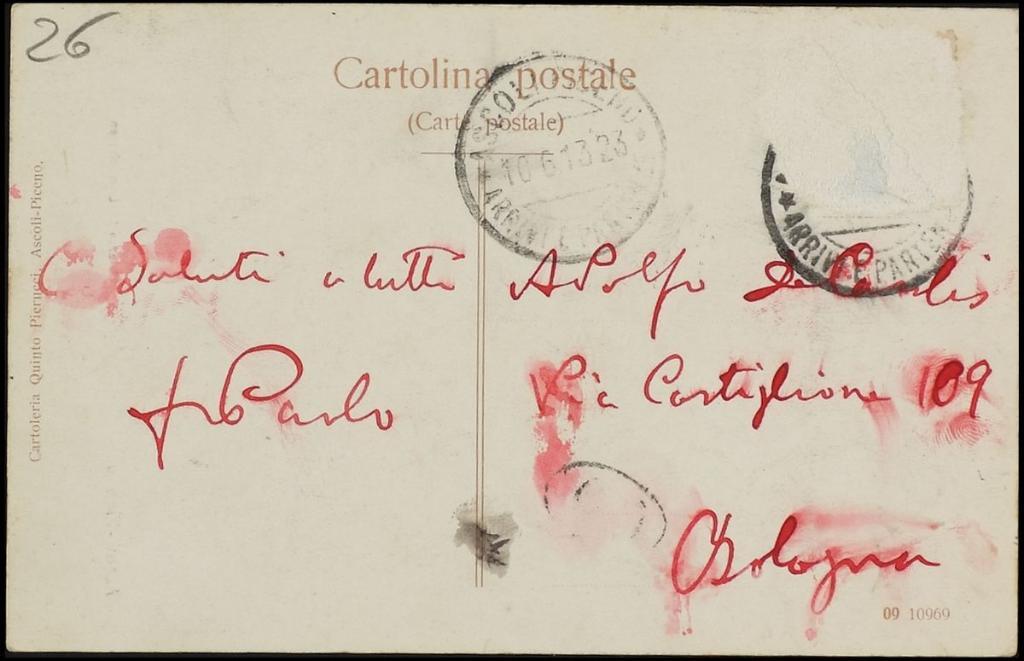 26
Cartolina postale
(Carte postale)
ASCOLI PICENO
10 6 13 23
ARRIVI E PARTENZE
ARRIVI E PARTEN
Cartoleria Quinto Pierucci, Ascoli-Piceno.
Saluti a tutti
fr Paolo
Adolfo De Carolis
Via Castiglione 109
Bologna
09 10969